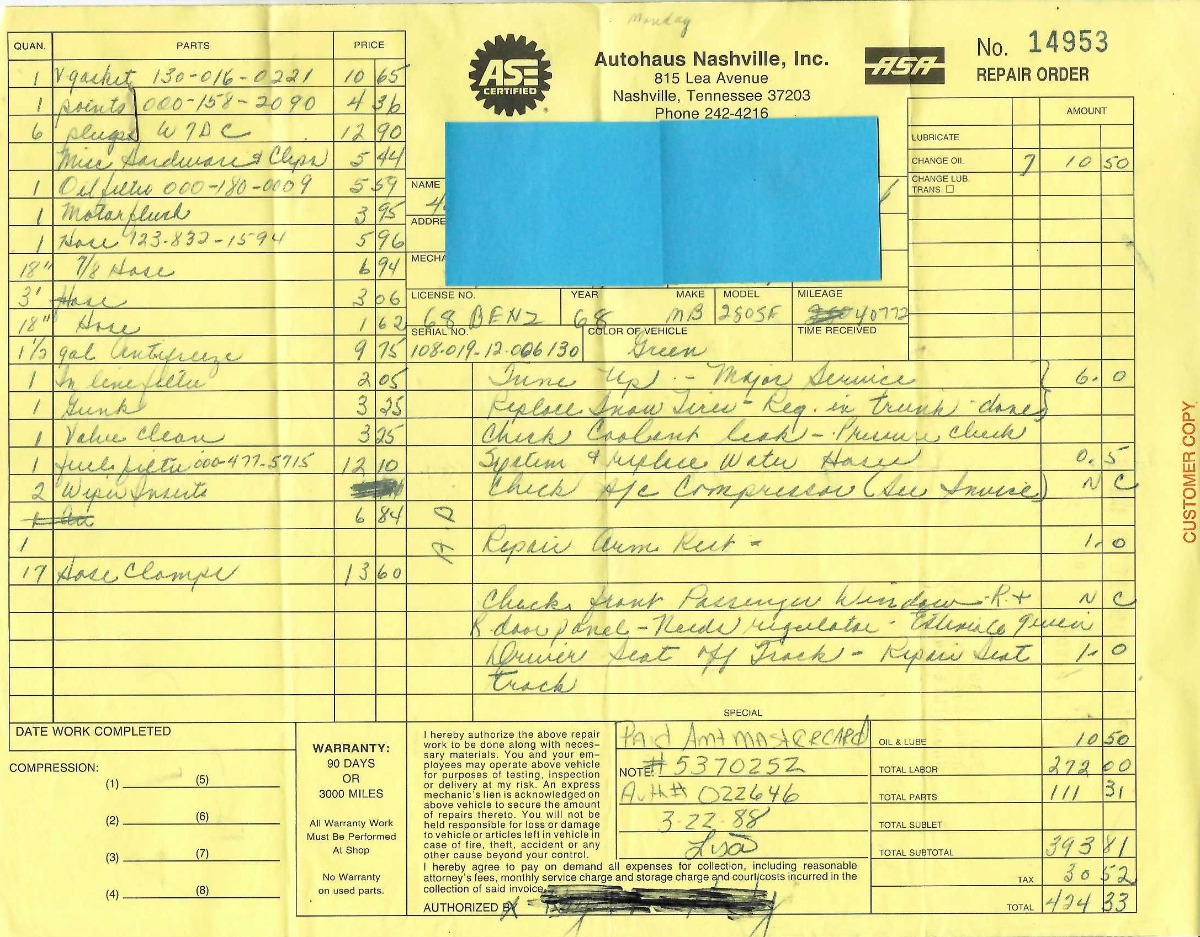 Monday
QUAN. PARTS PRICE
1 V gasket 130-016-0221 10 65
1 points 000-158-2090 4 36
6 plugs W7DC 12 90
Misc Hardware & Clips 5 44
1 Oil filter 000-180-0009 5 59
1 Motorflush 3 95
1 Hose 123-832-1594 5 96
18" 7/8 Hose 6 94
3' Hose 3 06
18" Hose 1 62
1 1/2 gal Antifreeze 9 75
1 In line filter 2 05
1 Gunk 3 25
1 Valve Clean 3 25
1 fuel filter 000-477-5715 12 10
2 Wiper Inserts
6 84
1
17 Hose Clamps 13 60
ASE
CERTIFIED
Autohaus Nashville, Inc.
815 Lea Avenue
Nashville, Tennessee 37203
Phone 242-4216
ASA
No. 14953
REPAIR ORDER
AMOUNT
LUBRICATE
CHANGE OIL 7 10 50
CHANGE LUB.
TRANS. ☐
NAME
ADDRE
MECHA
LICENSE NO. YEAR MAKE MODEL MILEAGE
68 BENZ 68 MB 280SE 40772
SERIAL NO. COLOR OF VEHICLE TIME RECEIVED
108-019-12-006130 Green
Tune Up - Major Service 6.0
Replace Snow Tires - Reg. in trunk - done
Check Coolant leak - Pressure Check
System & replace Water Hoses 0.5
Check A/c Compressor (See Invoice) N C
Repair Arm Rest - 1.0
Check front Passenger Window - R +
N C
R door panel - Needs regulator - Estimate given
Driver Seat off Track - Repair Seat 1.0
track
SPECIAL
DATE WORK COMPLETED
COMPRESSION:
(1) (5)
(2) (6)
(3) (7)
(4) (8)
WARRANTY:
90 DAYS
OR
3000 MILES
All Warranty Work
Must Be Performed
At Shop
No Warranty
on used parts.
I hereby authorize the above repair
work to be done along with neces-
sary materials. You and your em-
ployees may operate above vehicle
for purposes of testing, inspection
or delivery at my risk. An express
mechanic's lien is acknowledged on
above vehicle to secure the amount
of repairs thereto. You will not be
held responsible for loss or damage
to vehicle or articles left in vehicle
in case of fire, theft, accident or any
other cause beyond your control.
I hereby agree to pay on demand all expenses for collection, including reasonable
attorney's fees, monthly service charge and storage charge and court costs incurred in the
collection of said invoice.
AUTHORIZED BY X
Paid Amt MASTERCARD
NOTE: #5370252
Auth# 022646
3-22-88
Lisa
OIL & LUBE 10 50
TOTAL LABOR 272 00
TOTAL PARTS 111 31
TOTAL SUBLET
TOTAL SUBTOTAL 393 81
TAX 30 52
TOTAL 424 33
CUSTOMER COPY